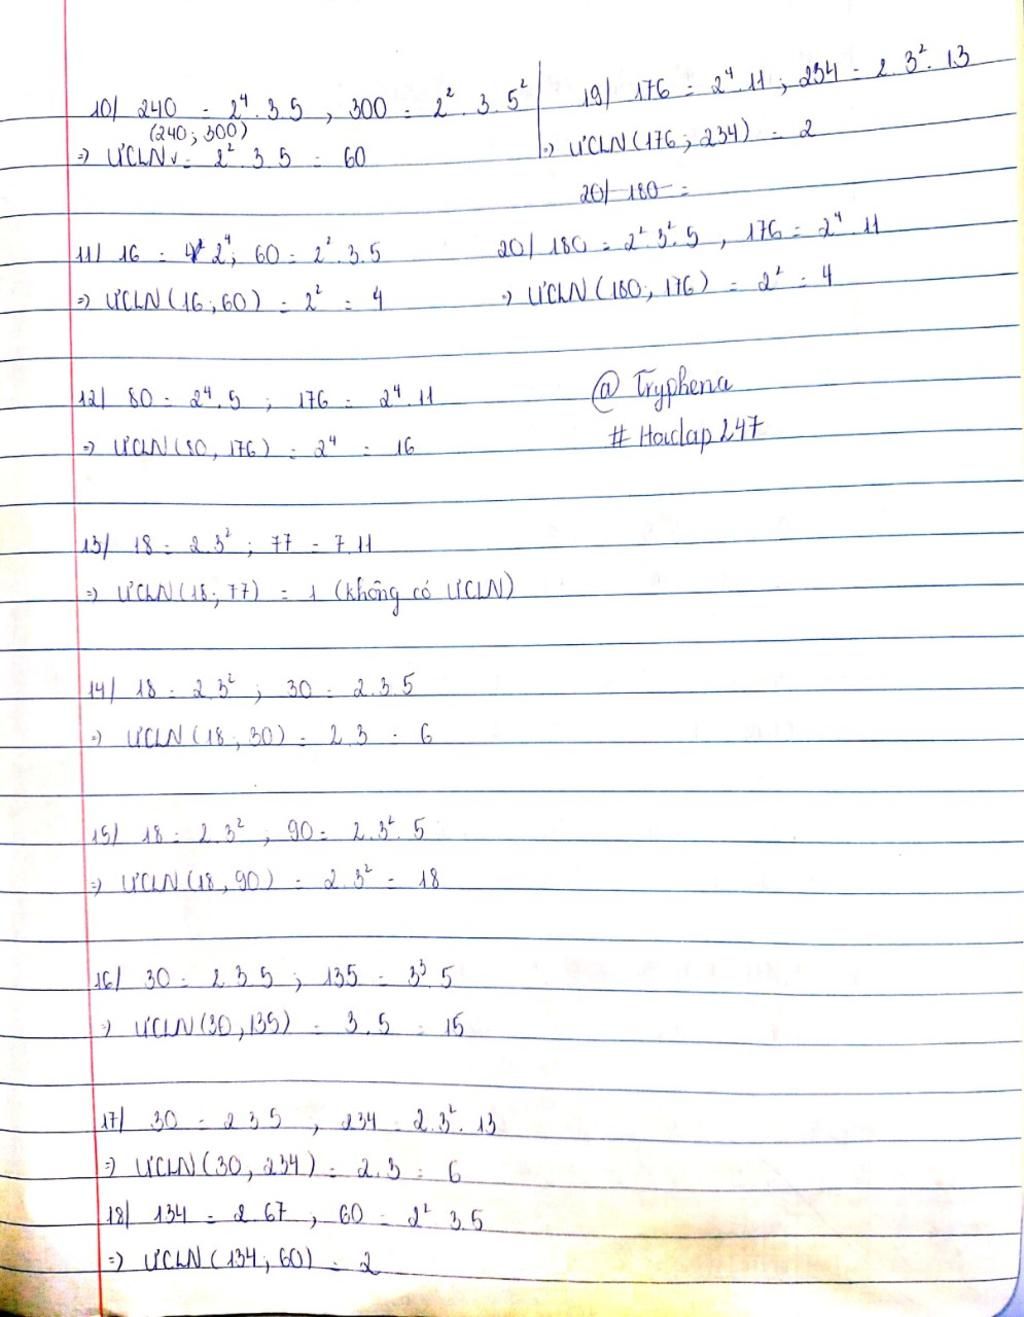 10/ 240 = 2⁴.3.5 , 300 = 2².3.5²
(240; 300)
=> ƯCLN = 2².3.5 = 60
11/ 16 = 2⁴; 60 = 2².3.5
=> ƯCLN(16;60) = 2² = 4
12/ 80 = 2⁴.5 ; 176 = 2⁴.11
=> ƯCLN(80, 176) = 2⁴ = 16
13/ 18 = 2.3² ; 77 = 7.11
=> ƯCLN(18; 77) = 1 (không có ƯCLN)
14/ 18 = 2.3² ; 30 = 2.3.5
=> ƯCLN(18; 30) = 2.3 = 6
15/ 18 = 2.3² , 90 = 2.3².5
=> ƯCLN(18,90) = 2.3² = 18
16/ 30 = 2.3.5 ; 135 = 3³.5
=> ƯCLN(30,135) = 3.5 = 15
17/ 30 = 2.3.5 , 234 = 2.3².13
=> ƯCLN(30, 234) = 2.3 = 6
18/ 134 = 2.67 , 60 = 2².3.5
=> ƯCLN(134; 60) = 2
19/ 176 = 2⁴.11 ; 234 = 2.3².13
=> ƯCLN(176; 234) = 2
20/ 180 =
20/ 180 = 2².3².5 , 176 = 2⁴.11
=> ƯCLN(180, 176) = 2² = 4
@ Tryphena
# Hoidap247